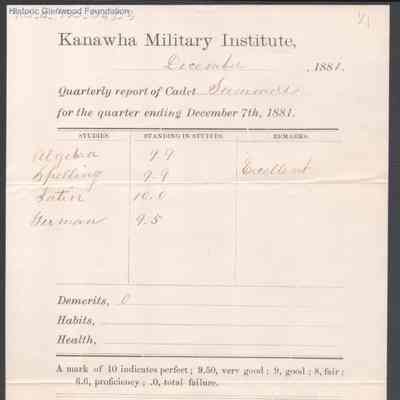 Historic Glenwood Foundation
Kanawha Military Institute,
December , 1881.
Quarterly report of Cadet Summers
for the quarter ending December 7th, 1881.
STUDIES. STANDING IN STUDIES. REMARKS.
Algebra 9.9
Spelling 9.9 Excellent
Latin 10.0
German 9.5
Demerits, 0
Habits,
Health,
A mark of 10 indicates perfect; 9.50, very good; 9, good; 8, fair;
6.6, proficiency; .0, total failure.